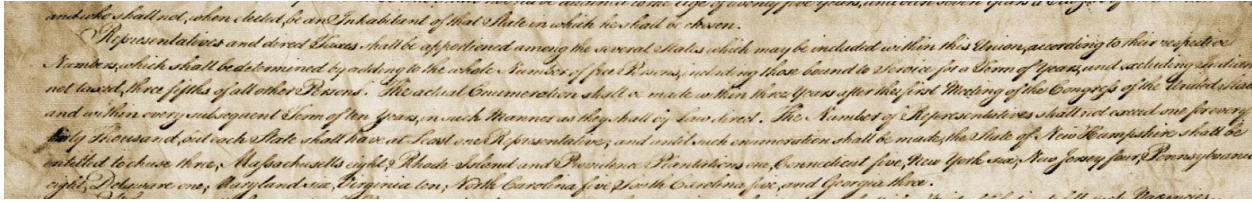 and who shall not, when elected, be an Inhabitant of that State in which he shall be chosen.
Representatives and direct Taxes shall be apportioned among the several States which may be included within this Union, according to their respective
Numbers, which shall be determined by adding to the whole Number of free Persons, including those bound to Service for a Term of Years, and excluding Indians
not taxed, three fifths of all other Persons. The actual Enumeration shall be made within three Years after the first Meeting of the Congress of the United States
and within every subsequent Term of ten Years, in such Manner as they shall by Law direct. The Number of Representatives shall not exceed one for every
thirty Thousand, but each State shall have at Least one Representative; and until such enumeration shall be made, the State of New Hampshire shall be
entitled to chuse three, Massachusetts eight, Rhode-Island and Providence Plantations one, Connecticut five, New York six, New Jersey four, Pennsylvania
eight, Delaware one, Maryland six, Virginia ten, North Carolina five, South Carolina five, and Georgia three.